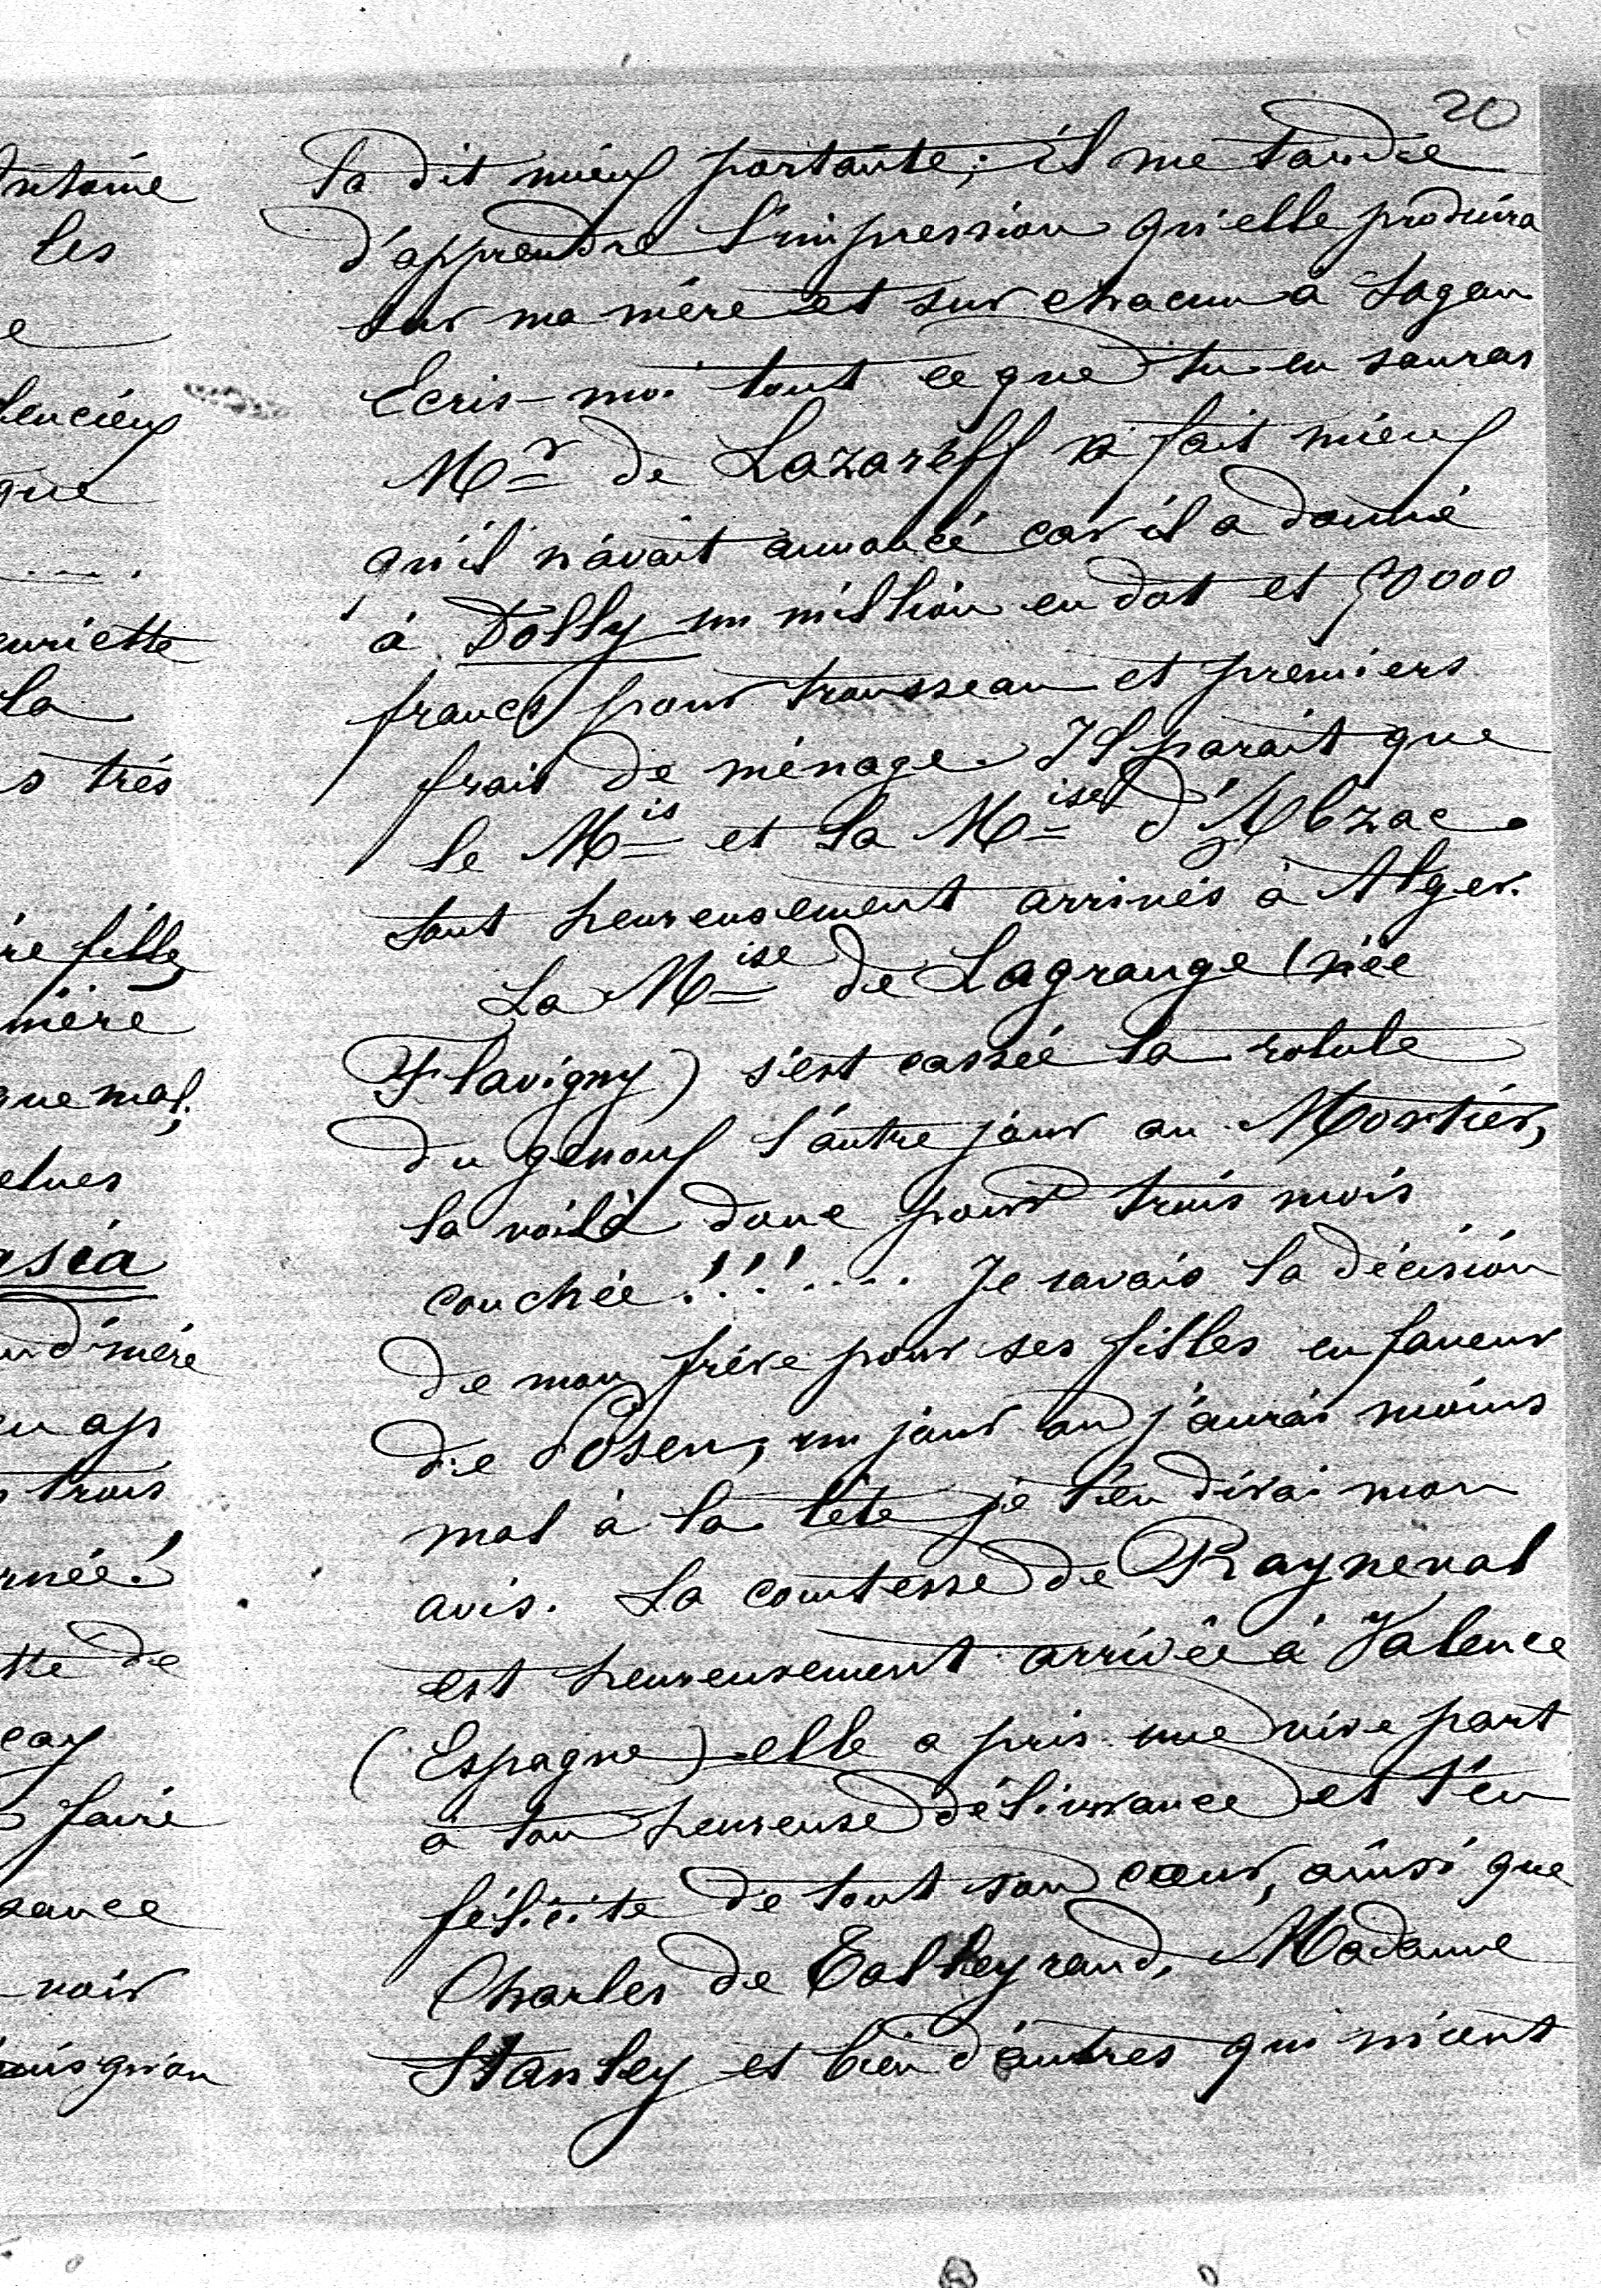 20
la dit mieux portante; il me tarde
d'apprendre l'impression qu'elle produira
sur ma mère et sur chacun à Sagan
Ecris-moi tout ce que tu en sauras
Mr de Lazareff a fait mieux
qu'il n'avait annoncé car il a donné
à Dolly un million en dot et 50000
francs pour trousseau et premiers
frais de ménage. Il parait que
le Mis et la Mise d'Abzac
sont heureusement arrivés à Alger.
La Mise de Lagrange (née
Flavigny) s'est cassée la rotule
du genoux l'autre jour au Mortier,
la voilà donc pour trois mois
couchée!!!.... Je savais la décision
de mon frère pour ses filles en faveur
de Posen, un jour où j'aurai moins
mal à la tête je t'en dirai mon
avis. La comtesse de Rayneval
est heureusement arrivée à Valence
(Espagne) elle a pris une vive part
à ton heureuse délivrance et t'en
félicite de tout son cœur, ainsi que
Charles de Talleyrand, Madame
Stanley et bien d'autres qui m'ont
ntoine
les
e
que
....
enriette
la
s très
re fille,
mère
que mal;
asia
nd'mère
trois
rnée!
tte de
faire
sance
voir